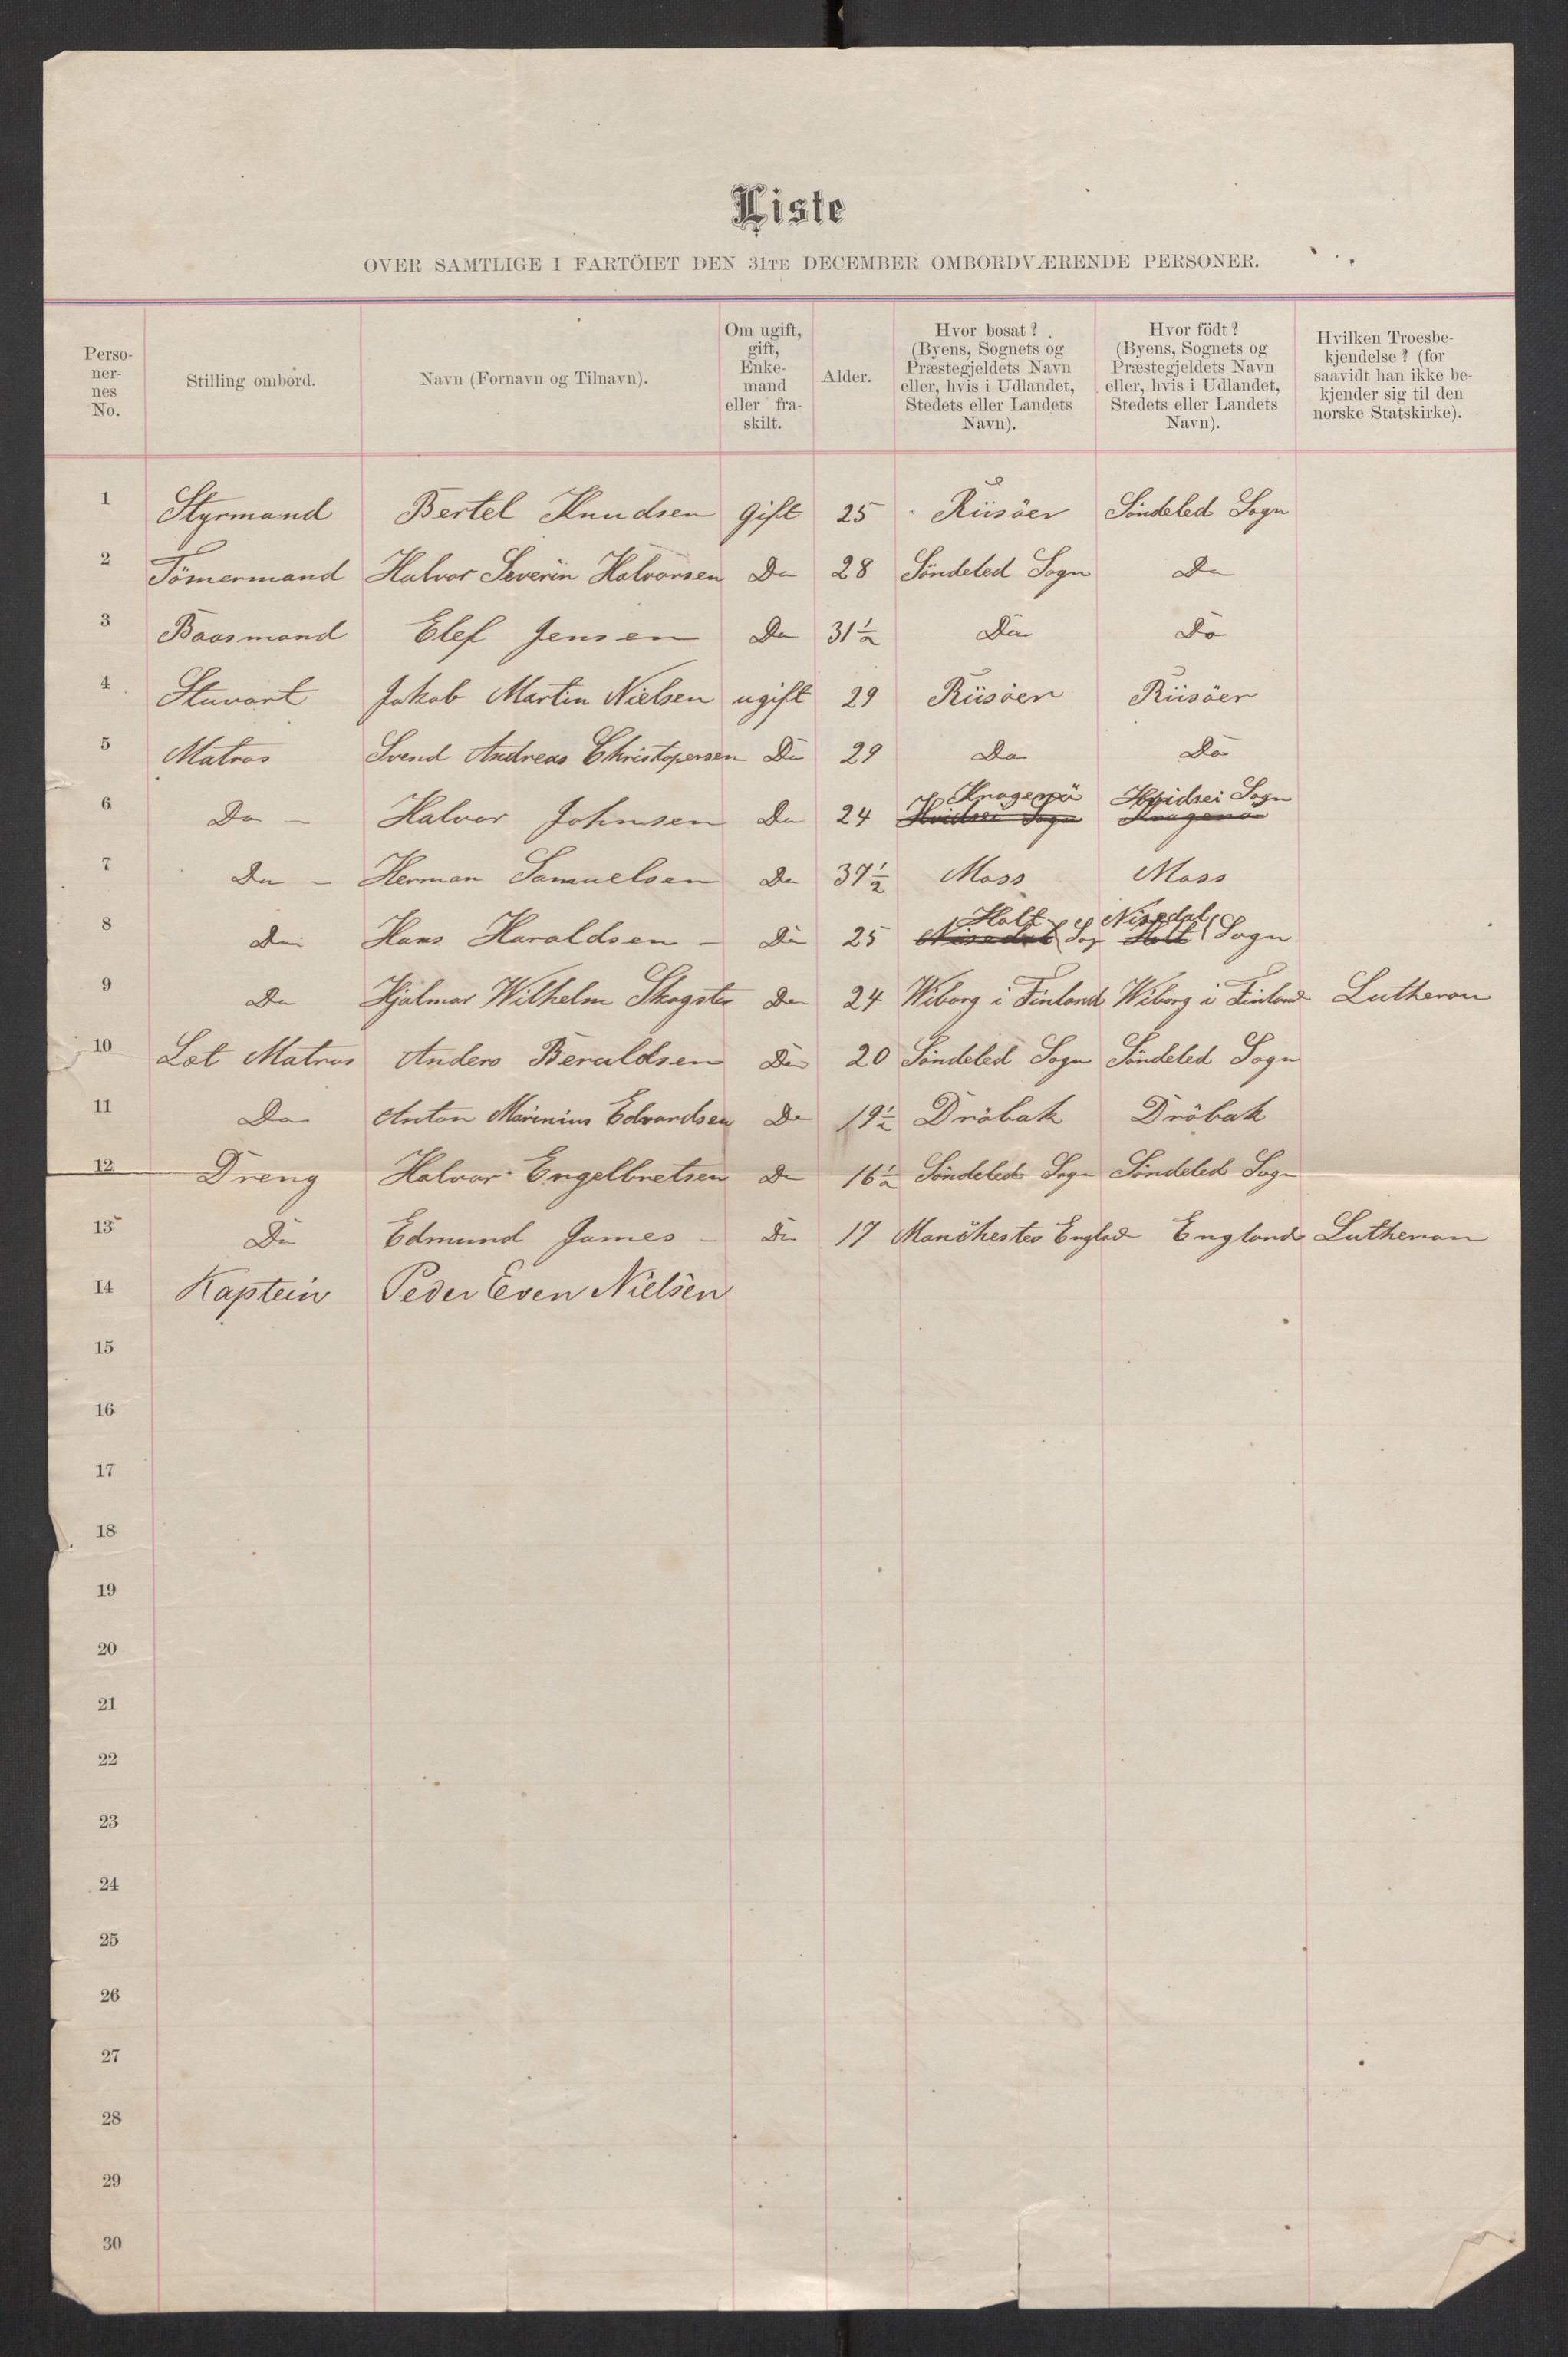 Liste
OVER SAMTLIGE I FARTÖIET DEN 31TE DECEMBER OMBORDVÆRENDE PERSONER.
Perso-
ner-
nes
No.
Stilling ombord.
Navn (Fornavn og Tilnavn).
Om ugift,
gift,
Enke-
mand
eller fra-
skilt.
Alder.
Hvor bosat?
(Byens, Sognets og
Præstegjeldets Navn
eller, hvis i Udlandet,
Stedets eller Landets
Navn).
Hvor födt?
(Byens, Sognets og
Præstegjeldets Navn
eller, hvis i Udlandet,
Stedets eller Landets
Navn).
Hvilken Troesbe-
kjendelse? (for
saavidt han ikke be-
kjender sig til den
norske Statskirke).
1 Styrmand Bertel Knudsen gift 25 Riisöer Söndeled Sogn
2 Tömermand Halvor Severin Halvorsen Do 28 Söndeled Sogn Do
3 Baasmand Elef Jensen Do 31½ Do Do
4 Stuvart Jakob Martin Nielsen ugift 29 Riisöer Riisöer
5 Matros Svend Andreas Christopersen Do 29 Do Do
Kragerö Hvidsei Sogn
6 Do – Halvor Johnsen Do 24 Hvidsei Sogn Kragerö
7 Do – Herman Samuelsen Do 37½ Moss Moss
Holt Nisedal
8 Do Hans Haraldsen – Do 25 Nisedal Sog Holt Sogn
9 Do Hjalmar Wilhelm Skogster Do 24 Wiborg i Finland Wiborg i Finland Lutheran
10 Let Matros Anders Beraldsen Do 20 Söndeled Sogn Söndeled Sogn
11 Do Anton Marinius Edvardsen Do 19½ Dröbak Dröbak
12 Dreng Halvor Engelbretsen Do 16½ Söndeled Sogn Söndeled Sogn
13 Do Edmund James – Do 17 Manchester Englad England Lutheran
14 Kaptein Peder Even Nielsen
15
16
17
18
19
20
21
22
23
24
25
26
27
28
29
30